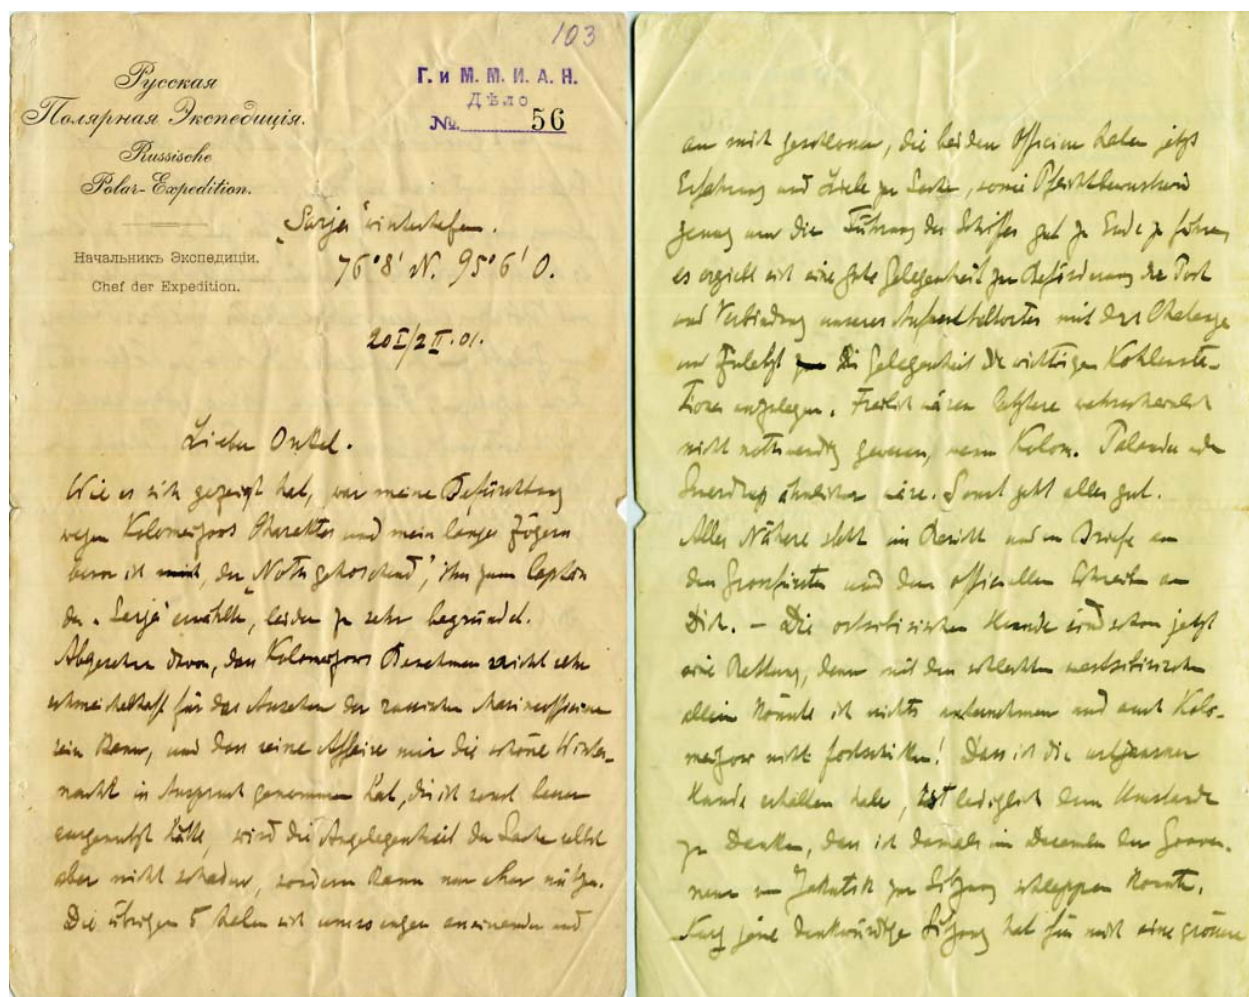 103
Русская
Полярная Экспедиція.
Russische
Polar-Expedition.
Начальникъ Экспедиціи.
Chef der Expedition.
Г. и М. М. И. А. Н.
Дѣло
№ 56
„Sarja“ winterhafen.
76°8' N. 95°6' O.
20 I/2 II. 01.
Lieber Onkel.
Wie es sich gezeigt hat, war meine Befürchtung
wegen Kolomeizows Charakter und mein langes Zögern
bevor ich, der Noth gehorchend, ihn zum Capitän
der „Sarja“ erwählte, leider zu sehr begründet.
Abgesehen davon, dass Kolomeizows Benehmen nicht sehr
schmeichelhaft für das Ansehen der russischen Marineofficiere
sein kann, und dass seine Affaire mir die schöne Winter-
nacht in Anspruch genommen hat, die ich sonst besser
ausgenutzt hätte, wird die Angelegenheit der Sache selbst
aber nicht schaden, sondern kann nur eher nützen.
Die übrigen 5 haben sich umso enger aneinander und
an mich geschlossen, die beiden Officiere haben jetzt
Erfahrung und Liebe zur Sache, sowie Pflichtbewusstsein
genug um die Führung des Schiffes gut zu Ende zu führen
es ergiebt sich eine gute Gelegenheit zur Beförderung der Post
und Verbindung unseres Aufenthaltortes mit der Chatanga
und zuletzt die Gelegenheit die wichtigen Kohlensta-
tionen anzulegen. Freilich wären letztere wahrscheinlich
nicht nothwendig gewesen, wenn Kolom. Palander oder
Sverdrup ähnlicher wäre. Sonst geht alles gut.
Alles Nähere steht im Bericht und im Briefe an
den Grossfürsten und dem officiellen Schreiben an
Dich. – Die ostsibirischen Hunde sind schon jetzt
eine Rettung, denn mit den schlechten westsibirischen
allein könnte ich nichts unternehmen und auch Kolo-
meizow nicht fortschicken! Dass ich die
Hunde erhalten habe, ist lediglich dem Umstande
zu danken, dass ich damals im December den Gouver-
neur von Jakutsk zur Sitzung schleppen konnte.
Kurz jene denkwürdige Sitzung hat für mich eine grössere